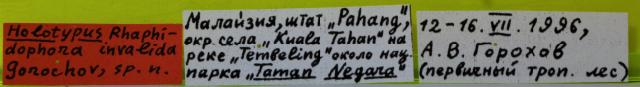 Holotypus Rhaphi-
dophora invalida
Gorochov, sp. n.
Малайзия, штат „Pahang",
окр. села „Kuala Tahan" на
реке „Tembeling" около нац.
парка „Taman Negara"
12-16. VII. 1996,
А. В. Горохов
(первичный троп. лес)